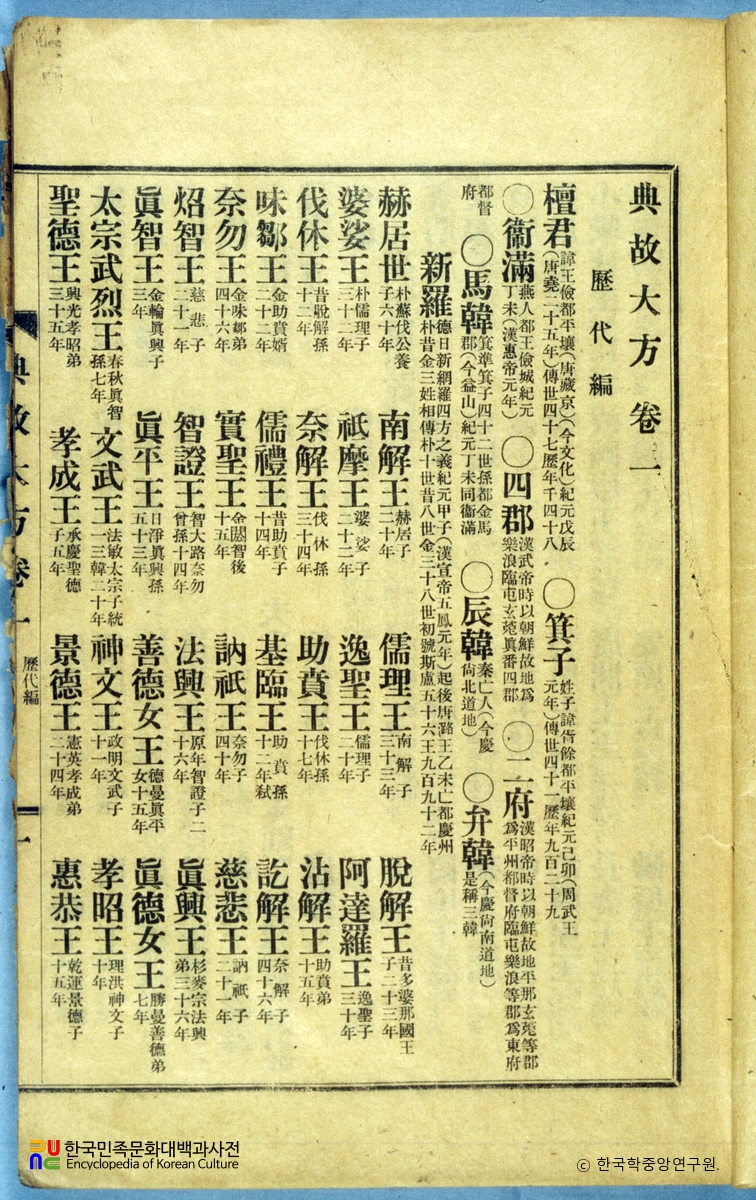 典故大方卷一
歷代編
檀君 諱王儉都平壤(唐藏京)(今文化)紀元戊辰(唐堯二十五年)傳世四十七歷年千四十八 ○箕子 姓子諱胥餘都平壤紀元己卯(周武王元年)傳世四十一歷年九百二十九
○衞滿 燕人都王儉城紀元丁未(漢惠帝元年) ○四郡 漢武帝時以朝鮮故地爲樂浪臨屯玄菟眞番四郡 ○二府 漢昭帝時以朝鮮故地平那玄菟等郡爲平州都督府臨屯樂浪等郡爲東府
都督府 ○馬韓 箕準箕子四十二世孫都金馬郡(今益山)紀元丁未同衞滿 ○辰韓 秦亡人(今慶尙北道地) ○弁韓 (今慶尙南道地)是稱三韓
新羅 德日新網羅四方之義紀元甲子(漢宣帝五鳳元年)起後唐潞王乙未亡都慶州朴昔金三姓相傳朴十世昔八世金三十八世初號斯盧五十六王九百九十二年
赫居世 朴蘇伐公養子六十年 南解王 赫居子二十年 儒理王 南解子三十三年 脫解王 昔多婆那國王子二十三年
婆娑王 朴儒理子三十二年 祇摩王 婆娑子二十二年 逸聖王 儒理子二十年 阿達羅王 逸聖子三十年
伐休王 昔脫解孫十二年 奈解王 伐休孫三十四年 助賁王 伐休孫十七年 沾解王 助賁弟十五年
味鄒王 金助賁婿二十二年 儒禮王 昔助賁子十四年 基臨王 助賁孫十二年弑 訖解王 奈解子四十六年
奈勿王 金味鄒弟四十六年 實聖王 金閼智後十五年 訥祇王 奈勿子四十年 慈悲王 訥祇子二十一年
炤智王 慈悲子二十一年 智證王 智大路奈勿曾孫十四年 法興王 原年智證子二十六年 眞興王 杉麥宗法興弟三十六年
眞智王 金輪眞興子三年 眞平王 日淨眞興孫五十三年 善德女王 德曼眞平女十五年 眞德女王 勝曼善德弟七年
太宗武烈王 春秋眞智孫七年 文武王 法敏太宗子統一三韓二十年 神文王 政明文武子十一年 孝昭王 理洪神文子十年
聖德王 興光孝昭弟三十五年 孝成王 承慶聖德子五年 景德王 憲英孝成弟二十四年 惠恭王 乾運景德子十五年
典故大方卷一 歷代編 一
한국민족문화대백과사전
Encyclopedia of Korean Culture
ⓒ 한국학중앙연구원.